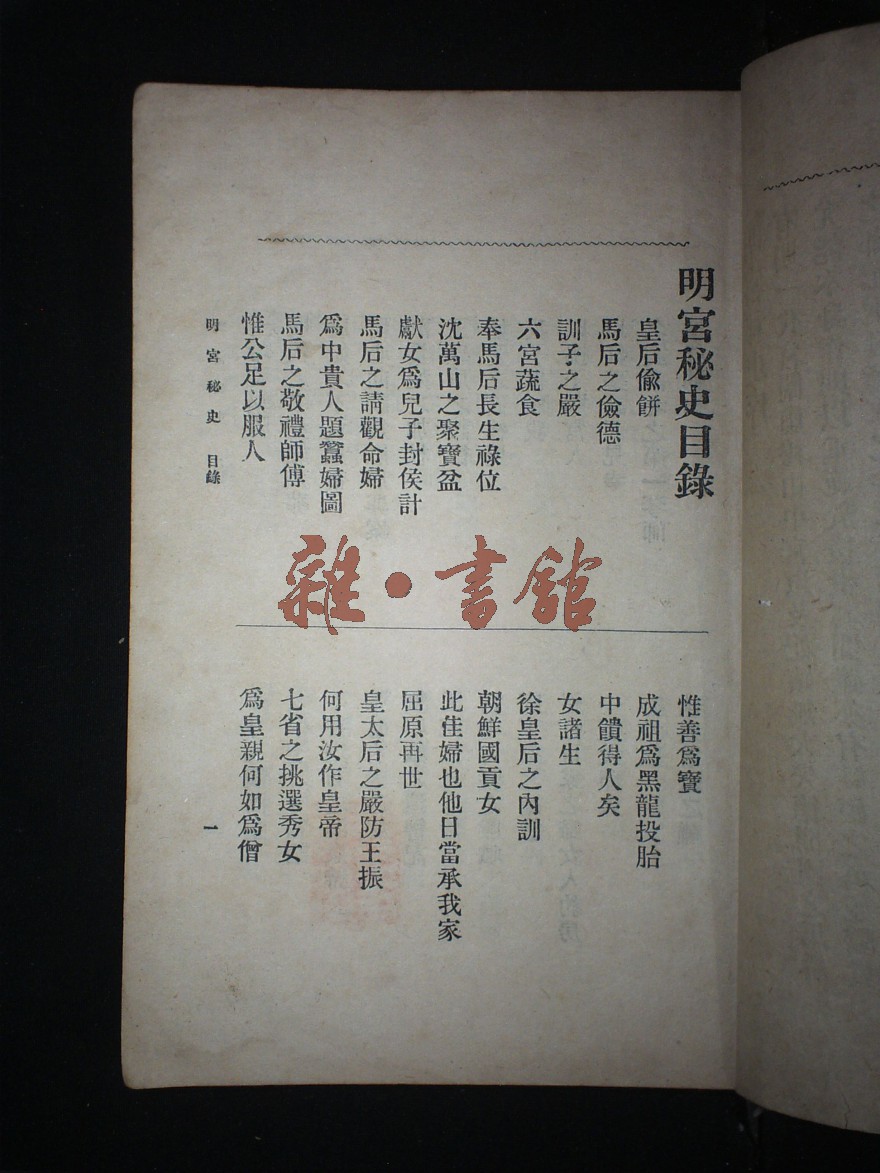 明宮秘史目錄
皇后偸餅
馬后之儉德
訓子之嚴
六宮蔬食
奉馬后長生祿位
沈萬山之聚寶盆
獻女爲兒子封侯計
馬后之請觀命婦
爲中貴人題蠶婦圖
馬后之敬禮師傅
惟公足以服人
惟善爲寶
成祖爲黑龍投胎
中饋得人矣
女諸生
徐皇后之內訓
朝鮮國貢女
此佳婦也他日當承我家
屈原再世
皇太后之嚴防王振
何用汝作皇帝
七省之挑選秀女
爲皇親何如爲僧
明宮秘史 目錄
一
雜·書館